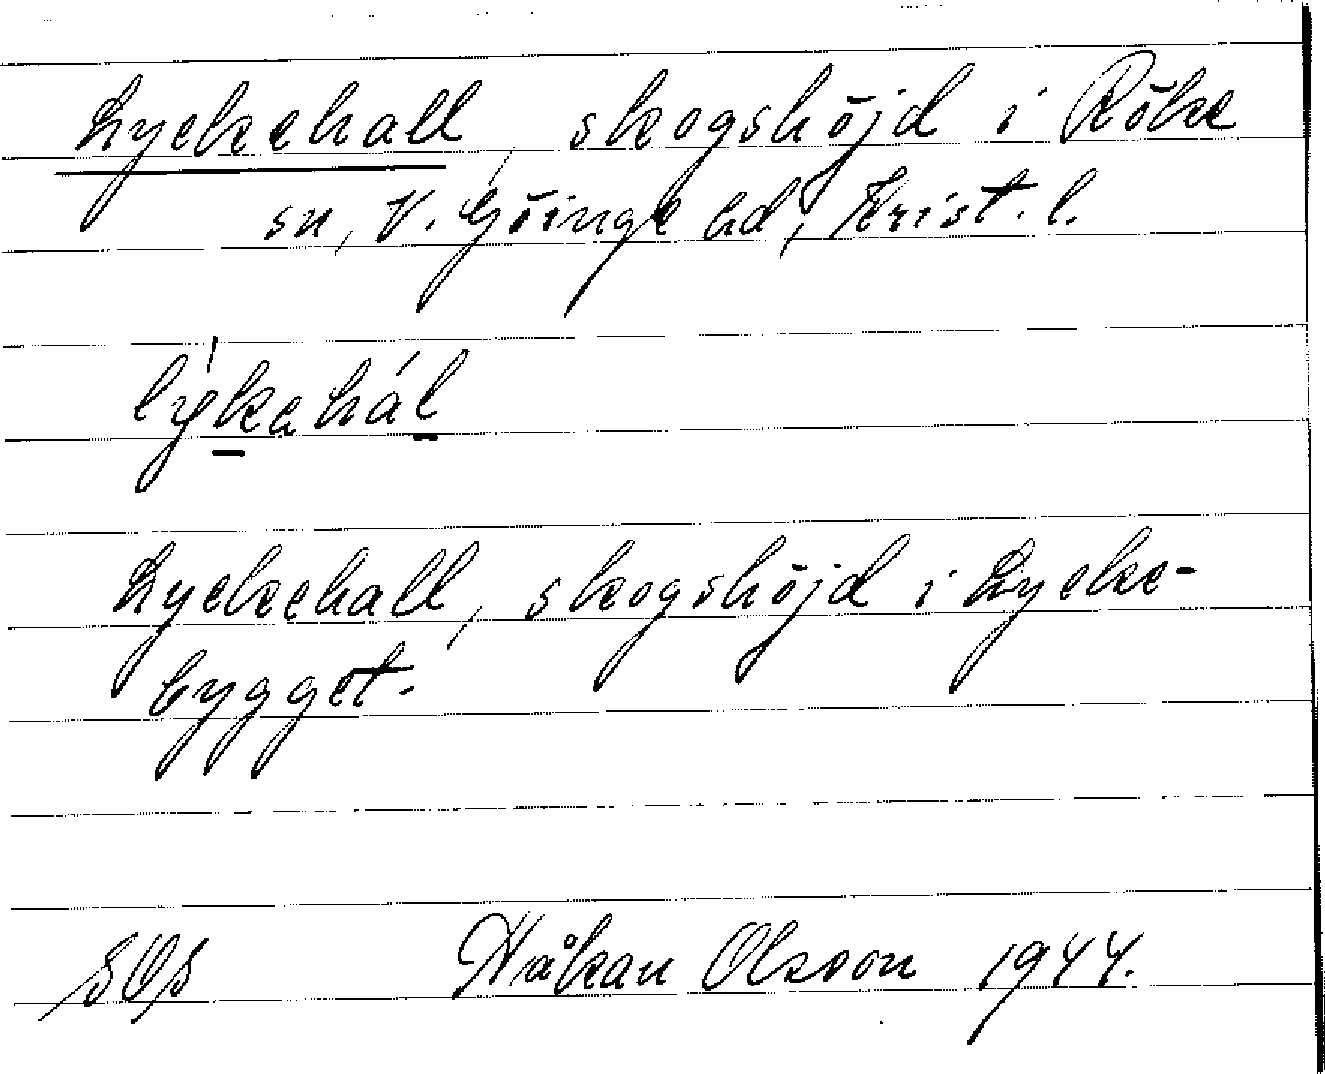 Lyckehall, skogshöjd i Röke
sn, V. Göinge hd, Krist. l.
lýkahál
Lyckehall, skogshöjd i Lycke-
bygget.
Håkan Olsson 1944.